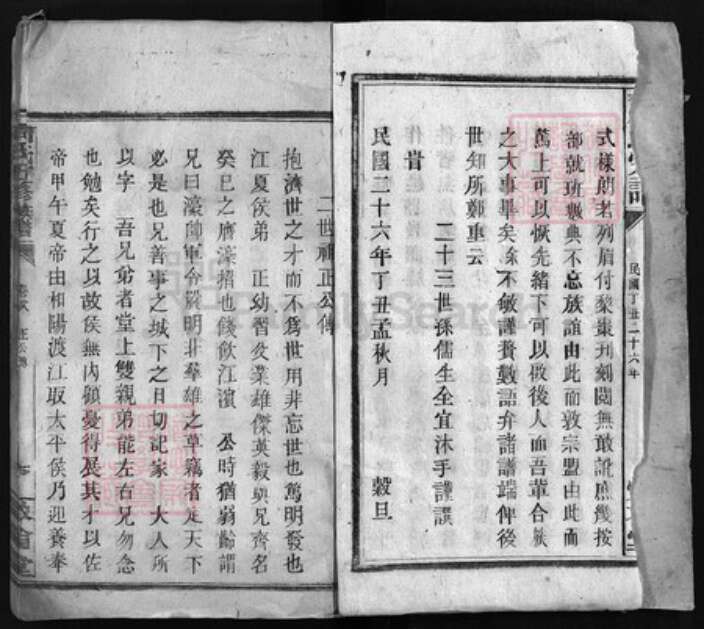 式樣朗若列眉付梨棗刋刻閱無敢訛庶幾按
部就班數典不忘族誼由此而敦宗盟由此而
篤上可以恢先緒下可以啟後人而吾輩合族
之大事畢矣餘不敏謹贅數語弁諸譜端俾後
世知所鄭重云
旹
二十三世孫儒生全宜沐手謹譔
民國二十六年丁丑孟秋月 穀旦
民國丁丑二十六年
二世祖正公傳
抱濟世之才而不爲世用非忘世也篤明發也
江夏侯弟 正幼習攵業雄傑英毅與兄齊名
癸巳之膺濠招也餞飲江濱 公時猶弱齡謂
兄曰濠帥軍令嚴明非羣雄之草竊者定天下
必是也兄善事之城下之日切記家 大人所
以字 吾兄弟者堂上雙親弟能左右兄勿念
也勉矣行之以故侯無內顧憂得展其才以佐
帝甲午夏帝由和陽渡江取太平侯乃迎養奉
正公傳